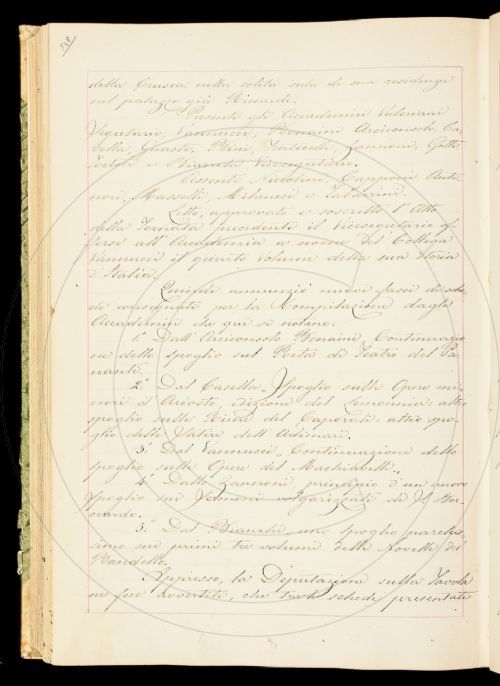 548
della Crusca nella solita sala di sua residenza
nel palazzo già Riccardi.
Presenti gli Accademici Valeriani
Segretario, Vannucci, Bonaini Arciconsolo, Ca-
sella, Guasti, Bini, Fraticelli, Zannoni, Gotti
Tortoli e Bianchi Vicesegretario.
Assenti Niccolini, Capponi Anti-
nori, Masselli, Milanesi e Tabarrini.
Letto, approvato e soscritto l'Atto
della Tornata precedente il Vicesegretario of-
ferse all'Accademia a nome del Collega
Vannucci il quarto Volume della sua Storia
d'Italia.
Quindi annunziò nuovi fasci di sche-
de consegnate per la Compilazione dagli
Accademici che qui si notano.
1.° Dall'Arciconsolo Bonaini, Continuazio-
ne dello spoglio sul Poeta di Teatro del Pa-
nanti.
2.° Dal Casella, Spoglio sulle Opere mi-
nori d'Ariosto, edizione del Lemonnier: altro
spoglio sulle Rime del Caporali: altro spo-
glio delle Satire dell'Adimari.
3.° Dal Vannucci, Continuazione dello
spoglio sulle Opere del Machiavelli.
4.° Dallo Zannoni, principio d'un nuovo
spoglio sui Sermoni volgarizzati di S. Ber-
nardo.
5.° Dal Bianchi, uno spoglio parchis-
simo sui primi tre volumi delle Novelle del
Bandello.
Appresso, la Deputazione sulla Tavola
ne fece avvertiti, che tra le schede presentate